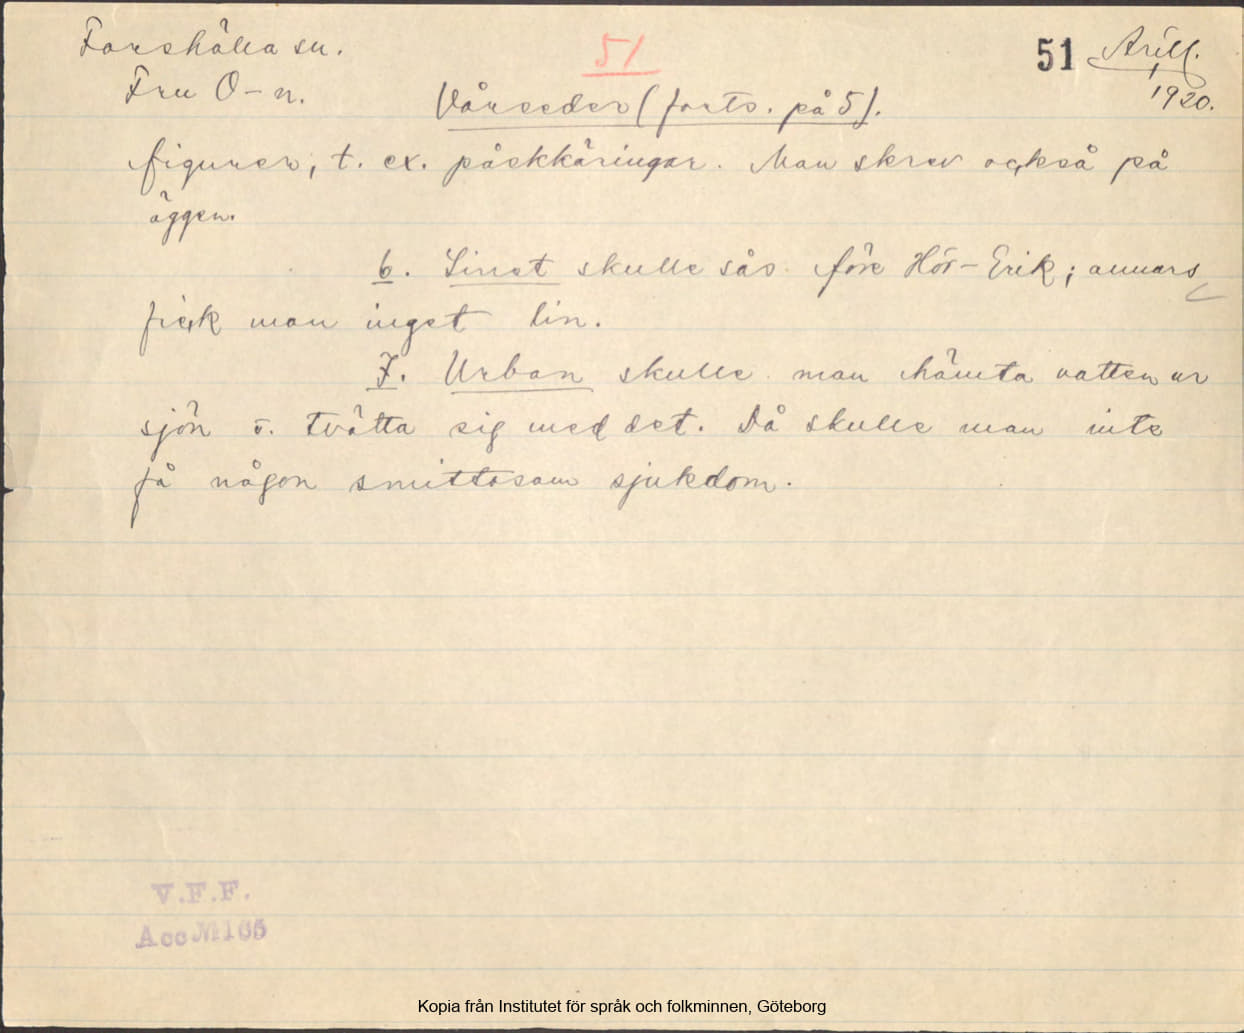 Forshälla sn.
51
51 Arill.
Fru O-n.
1920.
Vårseder (forts. på 5).
figurer, t. ex. påskkäringar. Man skrev också på
äggen.
6. Linet skulle sås före Hör-Erik; annars
fick man inget lin.
7. Urban skulle man hämta vatten ur
sjön o. tvätta sig med det. Då skulle man inte
få någon smittosam sjukdom.
V.F.F.
Acc № 165
Kopia från Institutet för språk och folkminnen, Göteborg